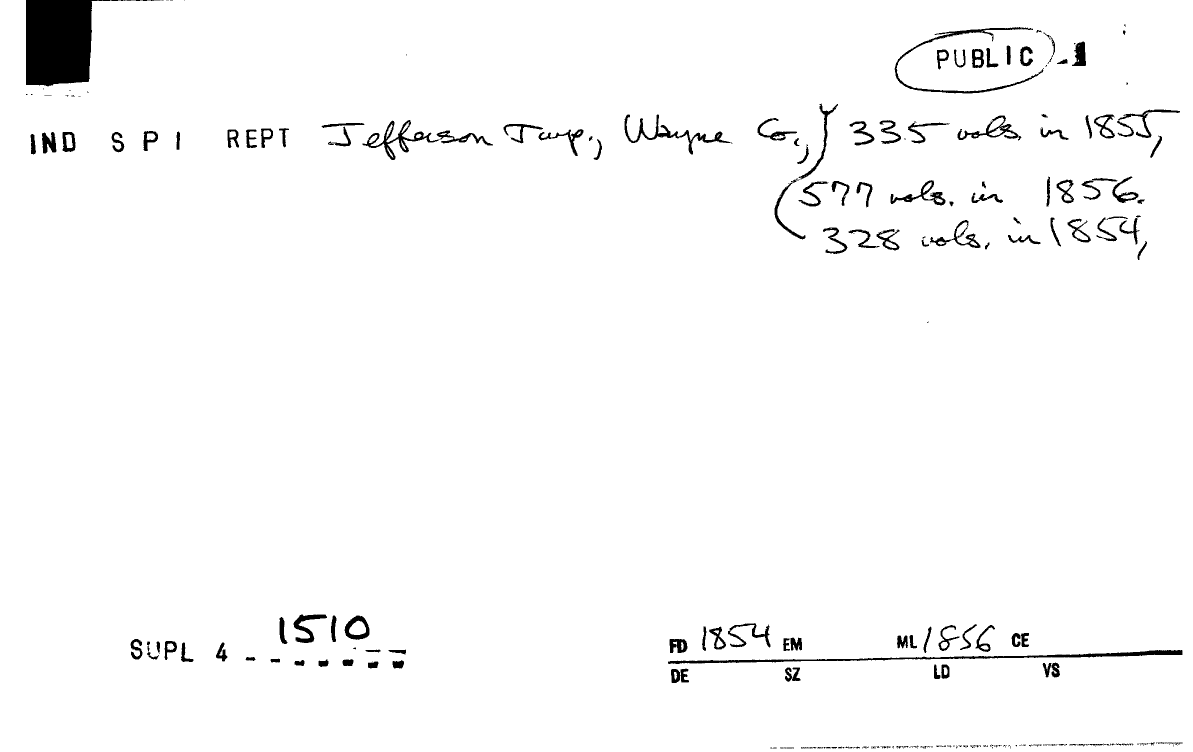 PUBLIC -1
IND S P I REPT Jefferson Twp., Wayne Co., 335 vols. in 1855,
577 vols. in 1856.
328 vols. in 1854,
1510
SUPL 4 - - - - - - -
FD 1854 EM ML 1856 CE
DE SZ LD VS